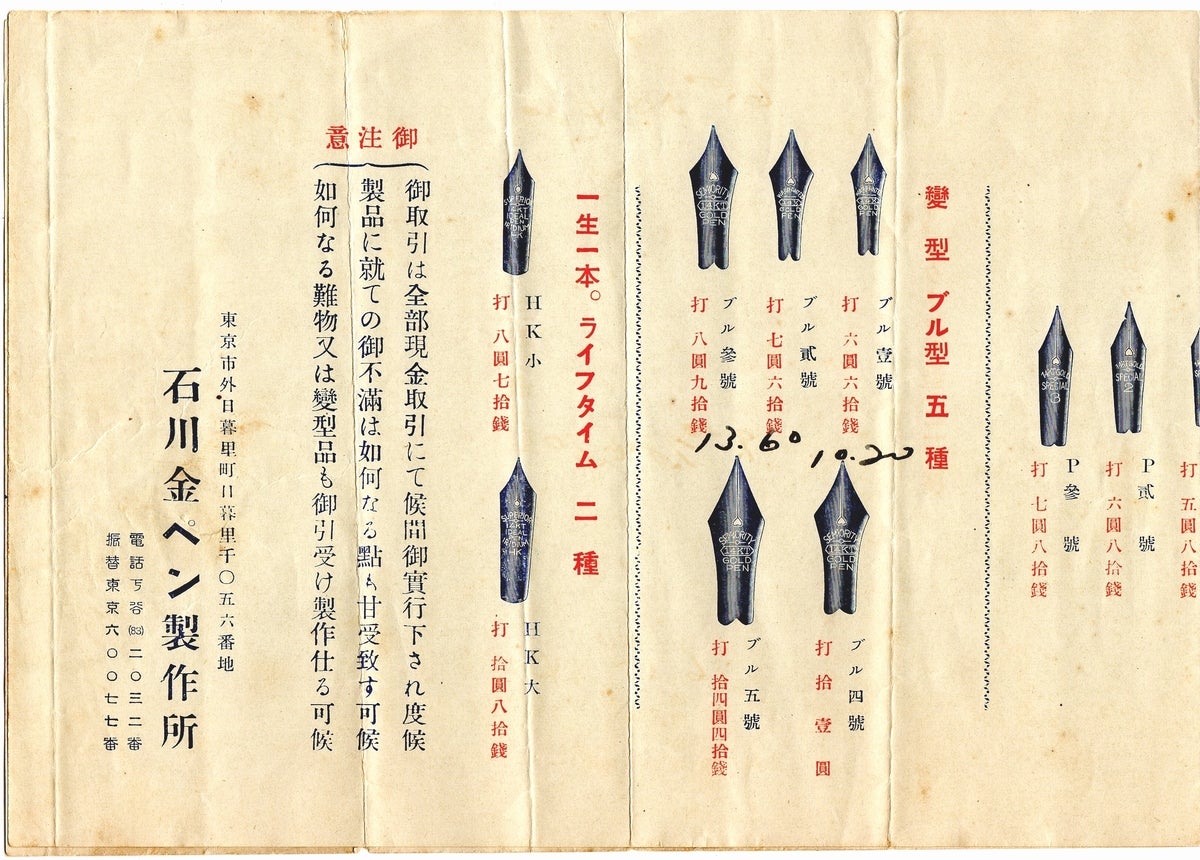 打 五圓八拾錢
14KT GOLD
SPECIAL
2
P貳號
打 六圓八拾錢
14KT GOLD
SPECIAL
3
P參號
打 七圓八拾錢
變型ブル型五種
WARRANTED
14KT
GOLD
PEN
ブル壹號
打 六圓六拾錢
WARRANTED
14KT
GOLD
PEN
ブル貳號
打 七圓六拾錢
SENIORITY
14KT
GOLD
PEN
ブル參號
打 八圓九拾錢
10.20
SENIORITY
14KT
GOLD
PEN
ブル四號
打 拾壹圓
13.60
SENIORITY
14KT
GOLD
PEN
ブル五號
打 拾四圓四拾錢
一生一本。ライフタイム 二種
SUPERIOR
14KT
IDEAL
PEN
IRIDIUM
HK
HK小
打 八圓七拾錢
SUPERIOR
14KT
IDEAL
PEN
IRIDIUM
HK
HK大
打 拾圓八拾錢
御注意
御取引は全部現金取引にて候間御實行下され度候
製品に就ての御不滿は如何なる點も甘受致す可候
如何なる難物又は變型品も御引受け製作仕る可候
東京市外日暮里町日暮里千〇五六番地
石川金ペン製作所
電話下谷(83)二〇三二番
振替東京六〇〇七七番